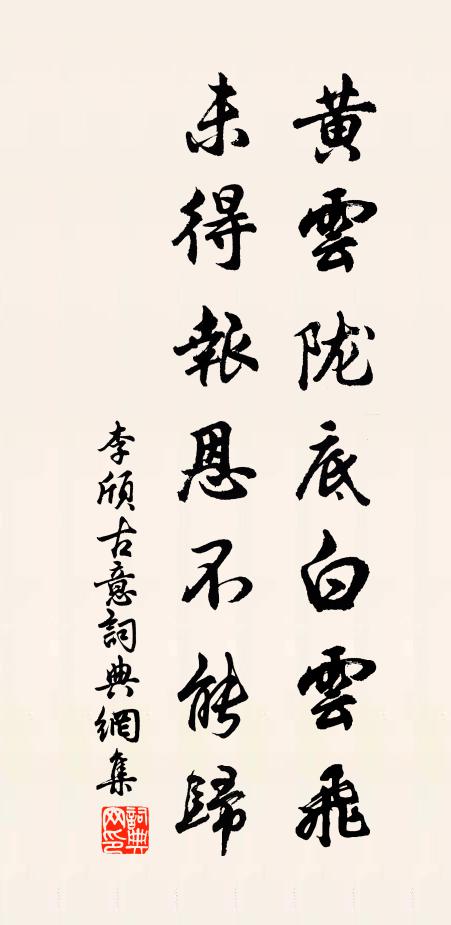 黄雲陇底白雲飛
未得報恩不能歸
李頎古意詞典網集
詞典
网印